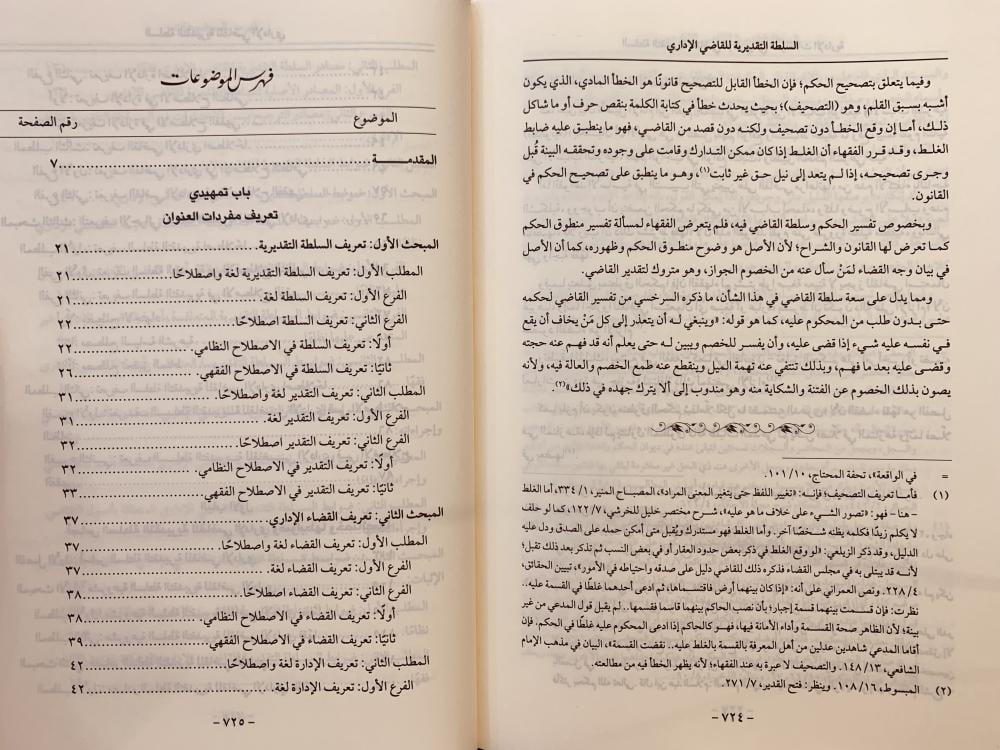 السلطة التقديرية للقاضي الإداري
وفيما يتعلق بتصحيح الحكم؛ فإن الخطأ القابل للتصحيح قانونًا هو الخطأ المادي، الذي يكون
أشبه بسبق القلم، وهو (التصحيف)؛ بحيث يحدث خطأ في كتابة الكلمة بنقص حرف أو ما شاكل
ذلك، أما إن وقع الخطأ دون تصحيف ولكنه دون قصد من القاضي، فهو ما ينطبق عليه ضابط
الغلط، وقد قرر الفقهاء أن الغلط إذا كان ممكن التدارك وقامت على وجوده وتحققه البينة قُبل
وجرى تصحيحه، إذا لم يتعد إلى نيل حق غير ثابت(١)، وهو ما ينطبق على تصحيح الحكم في
القانون.
وبخصوص تفسير الحكم وسلطة القاضي فيه، فلم يتعرض الفقهاء لمسألة تفسير منطوق الحكم
كما تعرض لها القانون والشراح؛ لأن الأصل هو وضوح منطوق الحكم وظهوره، كما أن الأصل
في بيان وجه القضاء لمَنْ سأل عنه من الخصوم الجواز، وهو متروك لتقدير القاضي.
ومما يدل على سعة سلطة القاضي في هذا الشأن، ما ذكره السرخسي من تفسير القاضي لحكمه
حتى بدون طلب من المحكوم عليه، كما هو قوله: «وينبغي له أن يتعذر إلى كل مَنْ يخاف أن يقع
في نفسه عليه شيء إذا قضى عليه، وأن يفسر للخصم ويبين له حتى يعلم أنه قد فهم عنه حجته
وقضى عليه بعد ما فهم، وبذلك تنتفي عنه تهمة الميل وينقطع عنه طمع الخصم والعالة فيه، ولأنه
يصون بذلك الخصوم عن الفتنة والشكاية منه وهو مندوب إلى ألا يترك جهده في ذلك»(٢).
= في الواقعة»، تحفة المحتاج، ١٠/ ١٠١.
(١) فأما تعريف التصحيف؛ فإنه: «تغيير اللفظ حتى يتغير المعنى المراد»، المصباح المنير، ١/ ٣٣٤، أما الغلط
– هنا – فهو: «تصور الشيء على خلاف ما هو عليه»، شرح مختصر خليل للخرشي، ٧/ ١٢٢، كما لو حلف
لا يكلم زيدًا فكلمه يظنه شخصًا آخر. وأما الغلط فهو مستدرك ويُقبل متى أمكن حمله على الصدق ودل عليه
الدليل، وقد ذكر الزيلعي: «لو وقع الغلط في ذكر بعض حدود العقار أو في بعض النسب ثم تذكر بعد ذلك تقبل؛
لأنه قد يبتلى به في مجلس القضاء فذكره ذلك للقاضي دليل على صدقه واحتياطه في الأمور»، تبيين الحقائق،
٤/ ٢٢٨. ونص العمراني على أنه: «إذا كان بينهما أرض فاقتسماها، ثم ادعى أحدهما غلطًا في القسمة عليه..
نظرت: فإن قسمت بينهما قسمة إجبار؛ بأن نصب الحاكم بينهما قاسما فقسمها.. لم يقبل قول المدعي من غير
بينة؛ لأن الظاهر صحة القسمة وأداء الأمانة فيها، فهو كالحاكم إذا ادعى المحكوم عليه غلطًا في الحكم. فإن
أقاما المدعي شاهدين عدلين من أهل المعرفة بالقسمة بالغلط عليه.. نقضت القسمة»، البيان في مذهب الإمام
الشافعي، ١٣/ ١٤٨. والتصحيف لا عبرة به عند الفقهاء؛ لأنه يظهر الخطأ فيه من مطالعته.
(٢) المبسوط، ١٦/ ١٠٨. وينظر: فتح القدير، ٧/ ٢٧١.
– ٧٢٤ –
فهرس الموضوعات
الموضوع رقم الصفحة
المقدمـــة ٧
باب تمهيدي
تعريف مفردات العنوان
المبحث الأول: تعريف السلطة التقديرية ٢١
المطلب الأول: تعريف السلطة التقديرية لغة واصطلاحًا ٢١
الفرع الأول: تعريف السلطة لغة ٢١
الفرع الثاني: تعريف السلطة اصطلاحًا ٢٢
أولًا: تعريف السلطة في الاصطلاح النظامي ٢٢
ثانيًا: تعريف السلطة في الاصطلاح الفقهي ٢٦
المطلب الثاني: تعريف التقدير لغة واصطلاحًا ٣١
الفرع الأول: تعريف التقدير لغة ٣١
الفرع الثاني: تعريف التقدير اصطلاحًا ٣٢
أولًا: تعريف التقدير في الاصطلاح النظامي ٣٢
ثانيًا: تعريف التقدير في الاصطلاح الفقهي ٣٣
المبحث الثاني: تعريف القضاء الإداري ٣٧
المطلب الأول: تعريف القضاء لغة واصطلاحًا ٣٧
الفرع الأول: تعريف القضاء لغة ٣٧
الفرع الثاني: تعريف القضاء اصطلاحًا ٣٨
أولًا: تعريف القضاء في الاصطلاح النظامي ٣٨
ثانيًا: تعريف القضاء في الاصطلاح الفقهي ٣٩
المطلب الثاني: تعريف الإدارة لغة واصطلاحًا ٤٢
الفرع الأول: تعريف الإدارة لغة ٤٢
– ٧٢٥ –